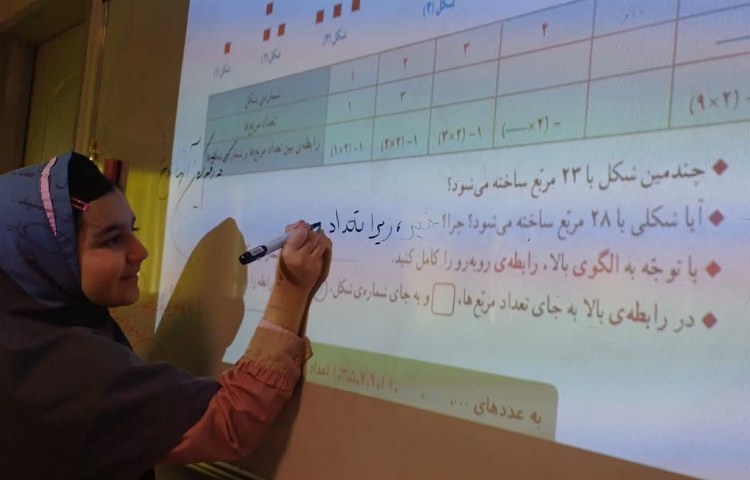 شکل(۱) شکل(۲) شکل(۳) شکل(۴)
شماره‌ی شکل ۱ ۲ ۳ ۴ ...
تعداد مربّع‌ها ۱ ۳
رابطه‌ی بین تعداد مربّع‌ها و شماره (۱×۲)-۱ (۲×۲)-۱ (۳×۲)-۱ (__×۲)- (۹×۲)-
چندمین شکل با ۲۳ مربّع ساخته می‌شود؟
آیا شکلی با ۲۸ مربّع ساخته می‌شود؟ چرا؟ خیر، زیرا تعداد
با توجّه به الگوی بالا، رابطه‌ی روبه‌رو را کامل کنید.
در رابطه‌ی بالا به جای تعداد مربّع‌ها، □ و به جای شماره‌ی شکل، ○
به عددهای ...، ۱،۳،۵،۷،۹،۱۱ اعداد